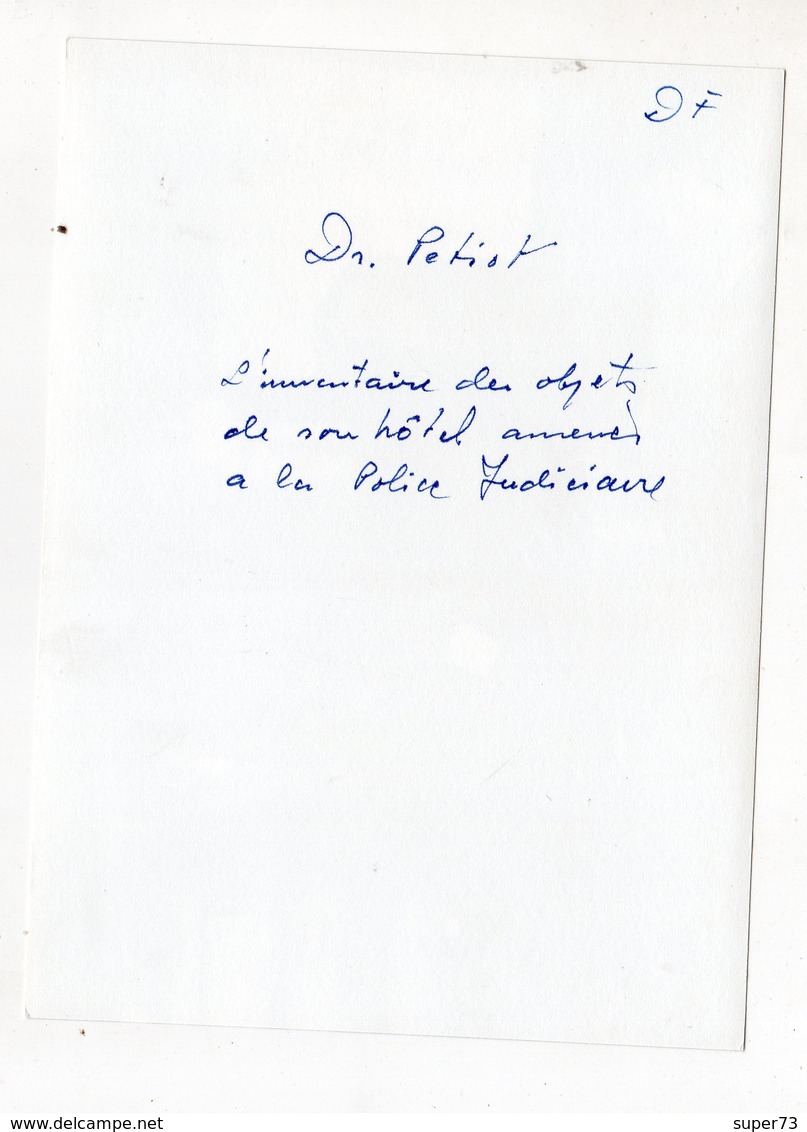 D F
Dr. Petiot
L'inventaire des objets
de son hôtel amenés
a la Police Judiciaire
delcampe.net
super73